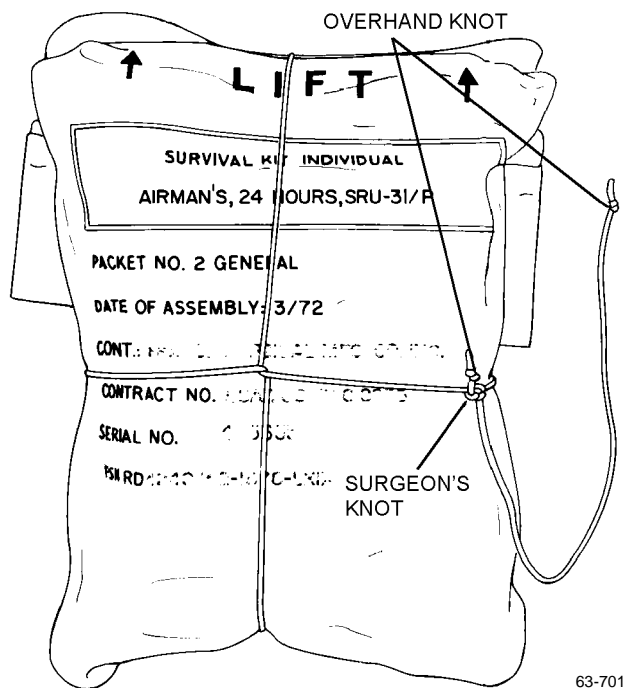 OVERHAND KNOT
LIFT
SURVIVAL KIT INDIVIDUAL
AIRMAN'S, 24 HOURS, SRU-31/P
PACKET NO. 2 GENERAL
DATE OF ASSEMBLY: 3/72
CONT.
CONTRACT NO.
SERIAL NO.
SURGEON'S
KNOT
63-701